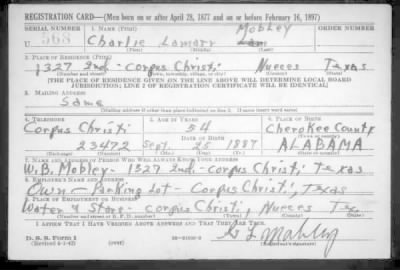 REGISTRATION CARD—(Men born on or after April 28, 1877 and on or before February 16, 1897)
SERIAL NUMBER 1. NAME (Print) Mobley ORDER NUMBER
U 563 Charlie Lamarr
(First) (Middle) (Last)
2. PLACE OF RESIDENCE (Print)
1327 2nd - Corpus Christi Nueces Texas
(Number and street) (Town, township, village, or city) (County) (State)
[THE PLACE OF RESIDENCE GIVEN ON THE LINE ABOVE WILL DETERMINE LOCAL BOARD
JURISDICTION; LINE 2 OF REGISTRATION CERTIFICATE WILL BE IDENTICAL]
3. MAILING ADDRESS
Same
[Mailing address if other than place indicated on line 2. If same insert word same]
4. TELEPHONE 5. AGE IN YEARS 6. PLACE OF BIRTH
Corpus Christi 54 Cherokee County
DATE OF BIRTH (Town or county)
23472 Sept. 25 1887 ALABAMA
(Exchange) (Number) (Mo.) (Day) (Yr.) (State or country)
7. NAME AND ADDRESS OF PERSON WHO WILL ALWAYS KNOW YOUR ADDRESS
W.B. Mobley - 1327 2nd. - Corpus Christi, Texas
8. EMPLOYER'S NAME AND ADDRESS
Own - Parking Lot - Corpus Christi, Texas
9. PLACE OF EMPLOYMENT OR BUSINESS
Water & Starr - Corpus Christi, Nueces Tex
(Number and street or R. F. D. number) (Town) (County) (State)
I AFFIRM THAT I HAVE VERIFIED ABOVE ANSWERS AND THAT THEY ARE TRUE.
D. S. S. Form 1
(Revised 4-1-42) (over) Mobley